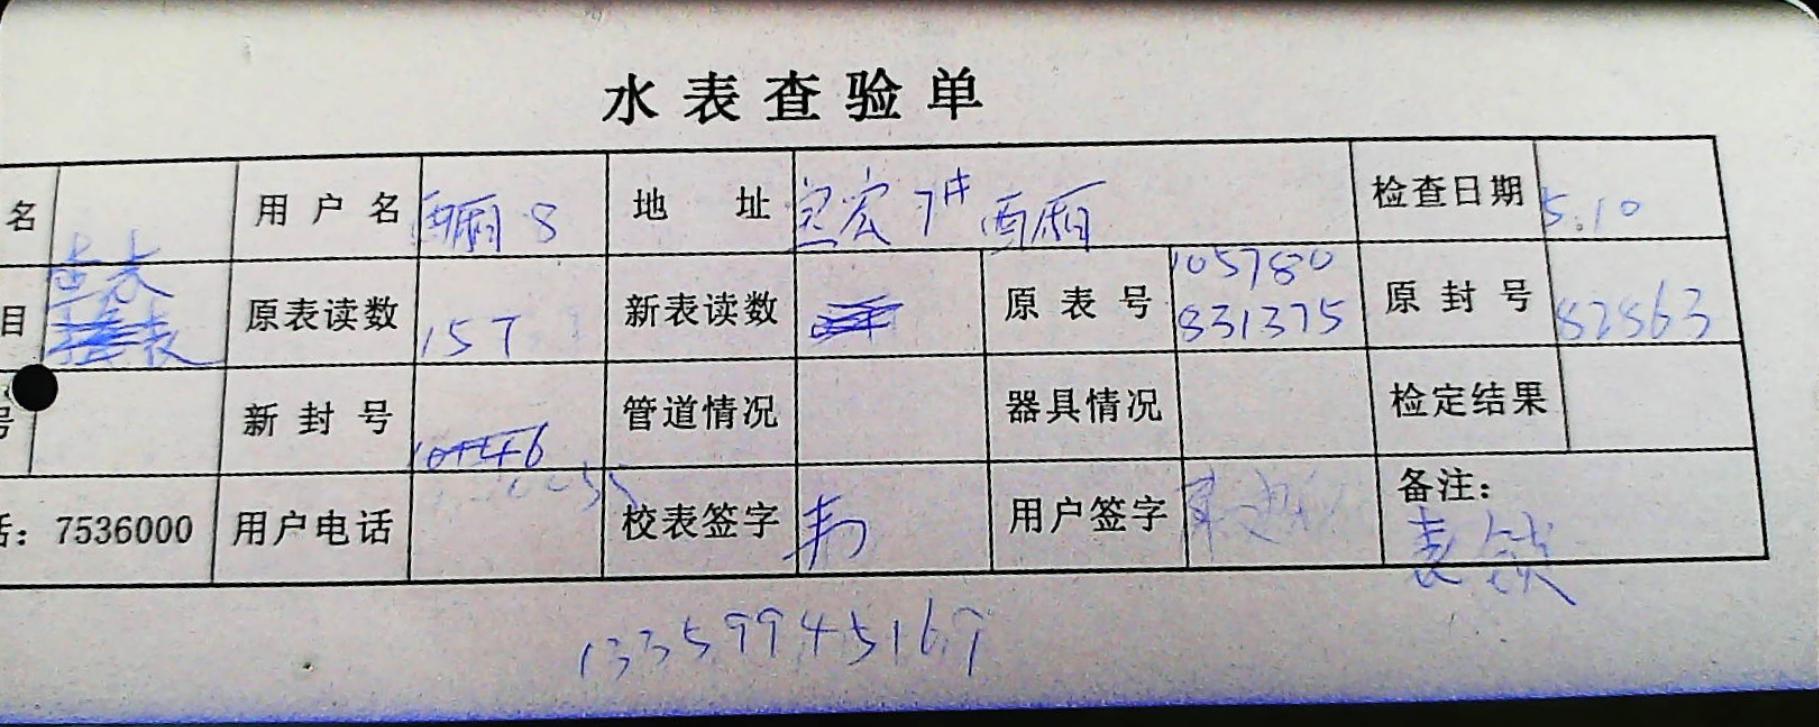 水表查验单
名 用户名 西厢 8 地 址 宝宏 7# 西厢 检查日期 5.10
目 原表读数 157 新表读数 原表号 105780 831375 原封号 82863
号 新封号 10446 管道情况 器具情况 检定结果
话：7536000 用户电话 校表签字 用户签字 备注：
表锁
13359945169